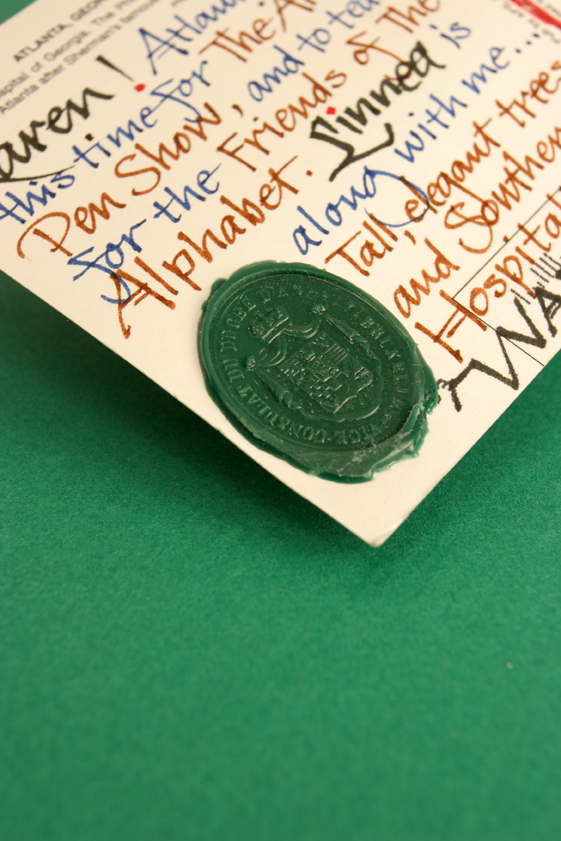 ATLANTA, GEOR
apital of Georgia. The Ph
Atlanta after Sherman's famous
aren! Atlant
this time for The A
Pen Show, and to tea
for the Friends of The
Alphabet. Linnea is
along with me...
Tall, elegant trees
and Southern
Hospital
WA
VICE-CONSULAT DU DUCHÉ D'ANHALT